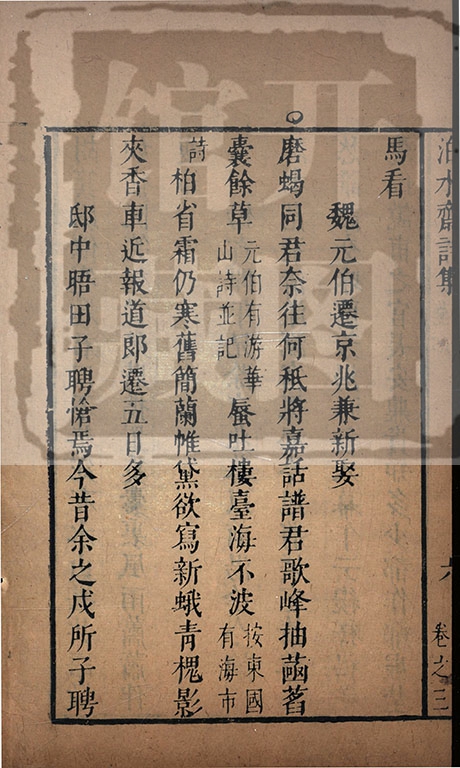 泊水齋詩集
六
卷之三
馬看
魏元伯遷京兆兼新娶
磨蝎同君奈往何秪將嘉話譜君歌峰抽菡萏
囊餘草元伯有游華山詩並記蜃吐樓臺海不波按東國有海市
詩柏省霜仍寒舊簡蘭帷黛欲寫新蛾青槐影
夾香車近報道郎遷五日多
邸中晤田子聘愴焉今昔余之戍所子聘